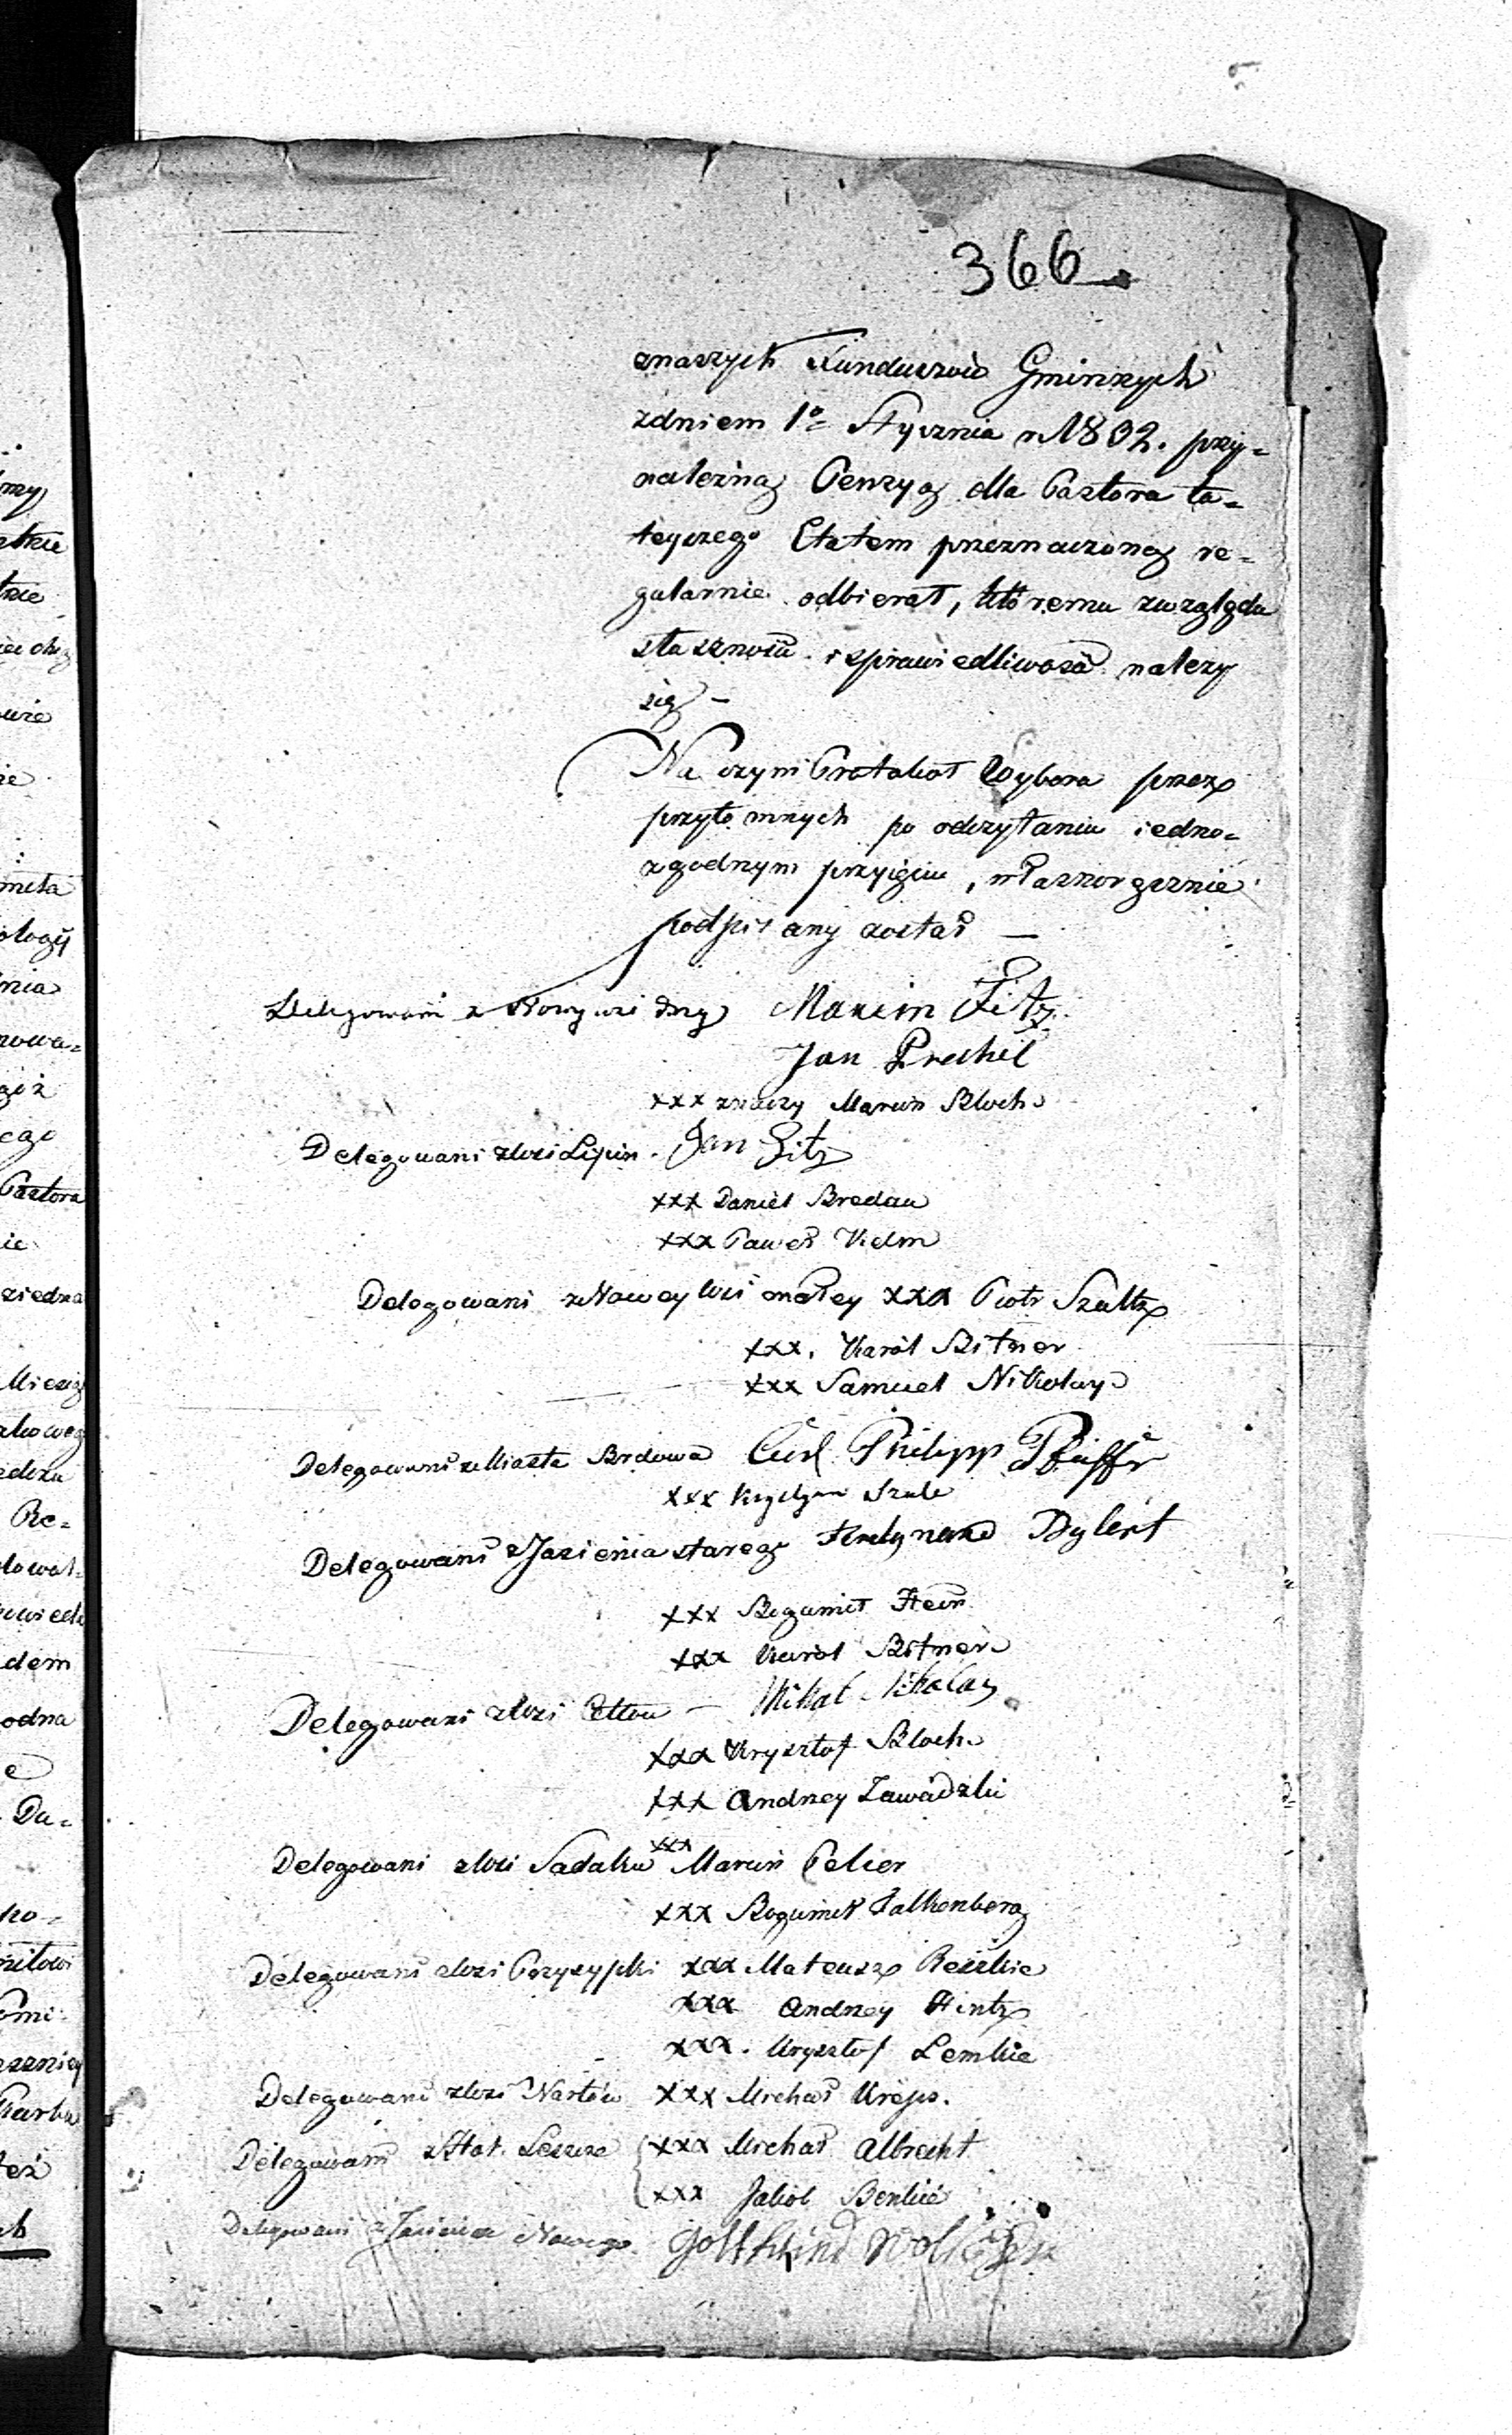 366
znaszych Funduszow Gminnych
zdniem 1º Stycznia r. 1832. przy=
należną Penzyą dla Pastora tu=
teyszego Etatem przeznaczoną re=
gularnie odbierał, któremu zwzględu
słuszności i sprawiedliwości należy
się –
Na czym Protokoł Wyboru przez
przytomnych po odczytaniu iedno=
zgodnym przyięciu, własnoręcznie
podpisany został —
Delegowani z Nowy wsi Marcin Fitz
Jan Prechel
xxx znaczy Marcin Bloch
Delegowani z Wsi Lipin. Jan Fitz
xxx Daniel Bredau
xxx Paweł Kelm
Delegowani z Nowey Wsi małey xxx Piotr Szultz
xxx. Karol Bitner
xxx Samuel Nikolay
Delegowani z Miasta Brdowa Carl Philipp Pfeiffr
xxx Szulc
Delegowani z Jasienia starego Ferdynand Dylert
xxx Bogumił Hein
xxx Karol Bitner
Delegowani z Wsi – Mikal Nikolay
xxx Krysztof Bloch
xxx Andrzey Zawadzki
xxx
Delegowani z Wsi Sadaku Marcin Pelcer
xxx Bogumił Falkenberg
Delegowani z Wsi Przysypki xxx Mateusz Reszkie
xxx Andrzey Hintz
xxx. Krysztof Lemkie
Delegowani z Wsi xxx Michał Kreps.
Delegowani z Hol. Leszcze xxx Michał Albrecht
xxx Jakob Benkie
Delegowani z Jasienia Nowego.